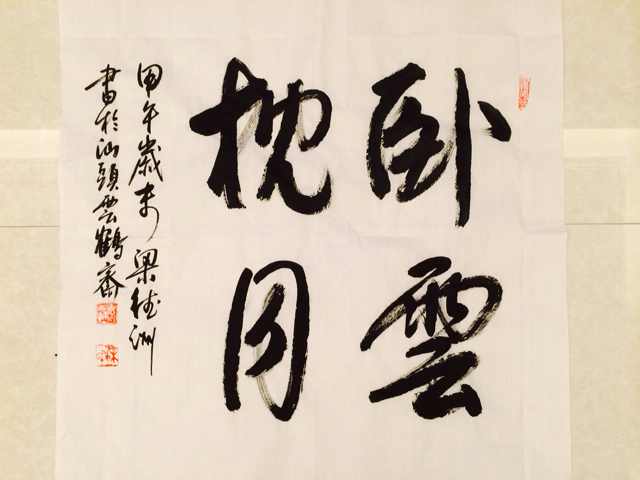 卧雲
枕月
甲午歲末 梁德洲
書於汕頭雲鶴齋